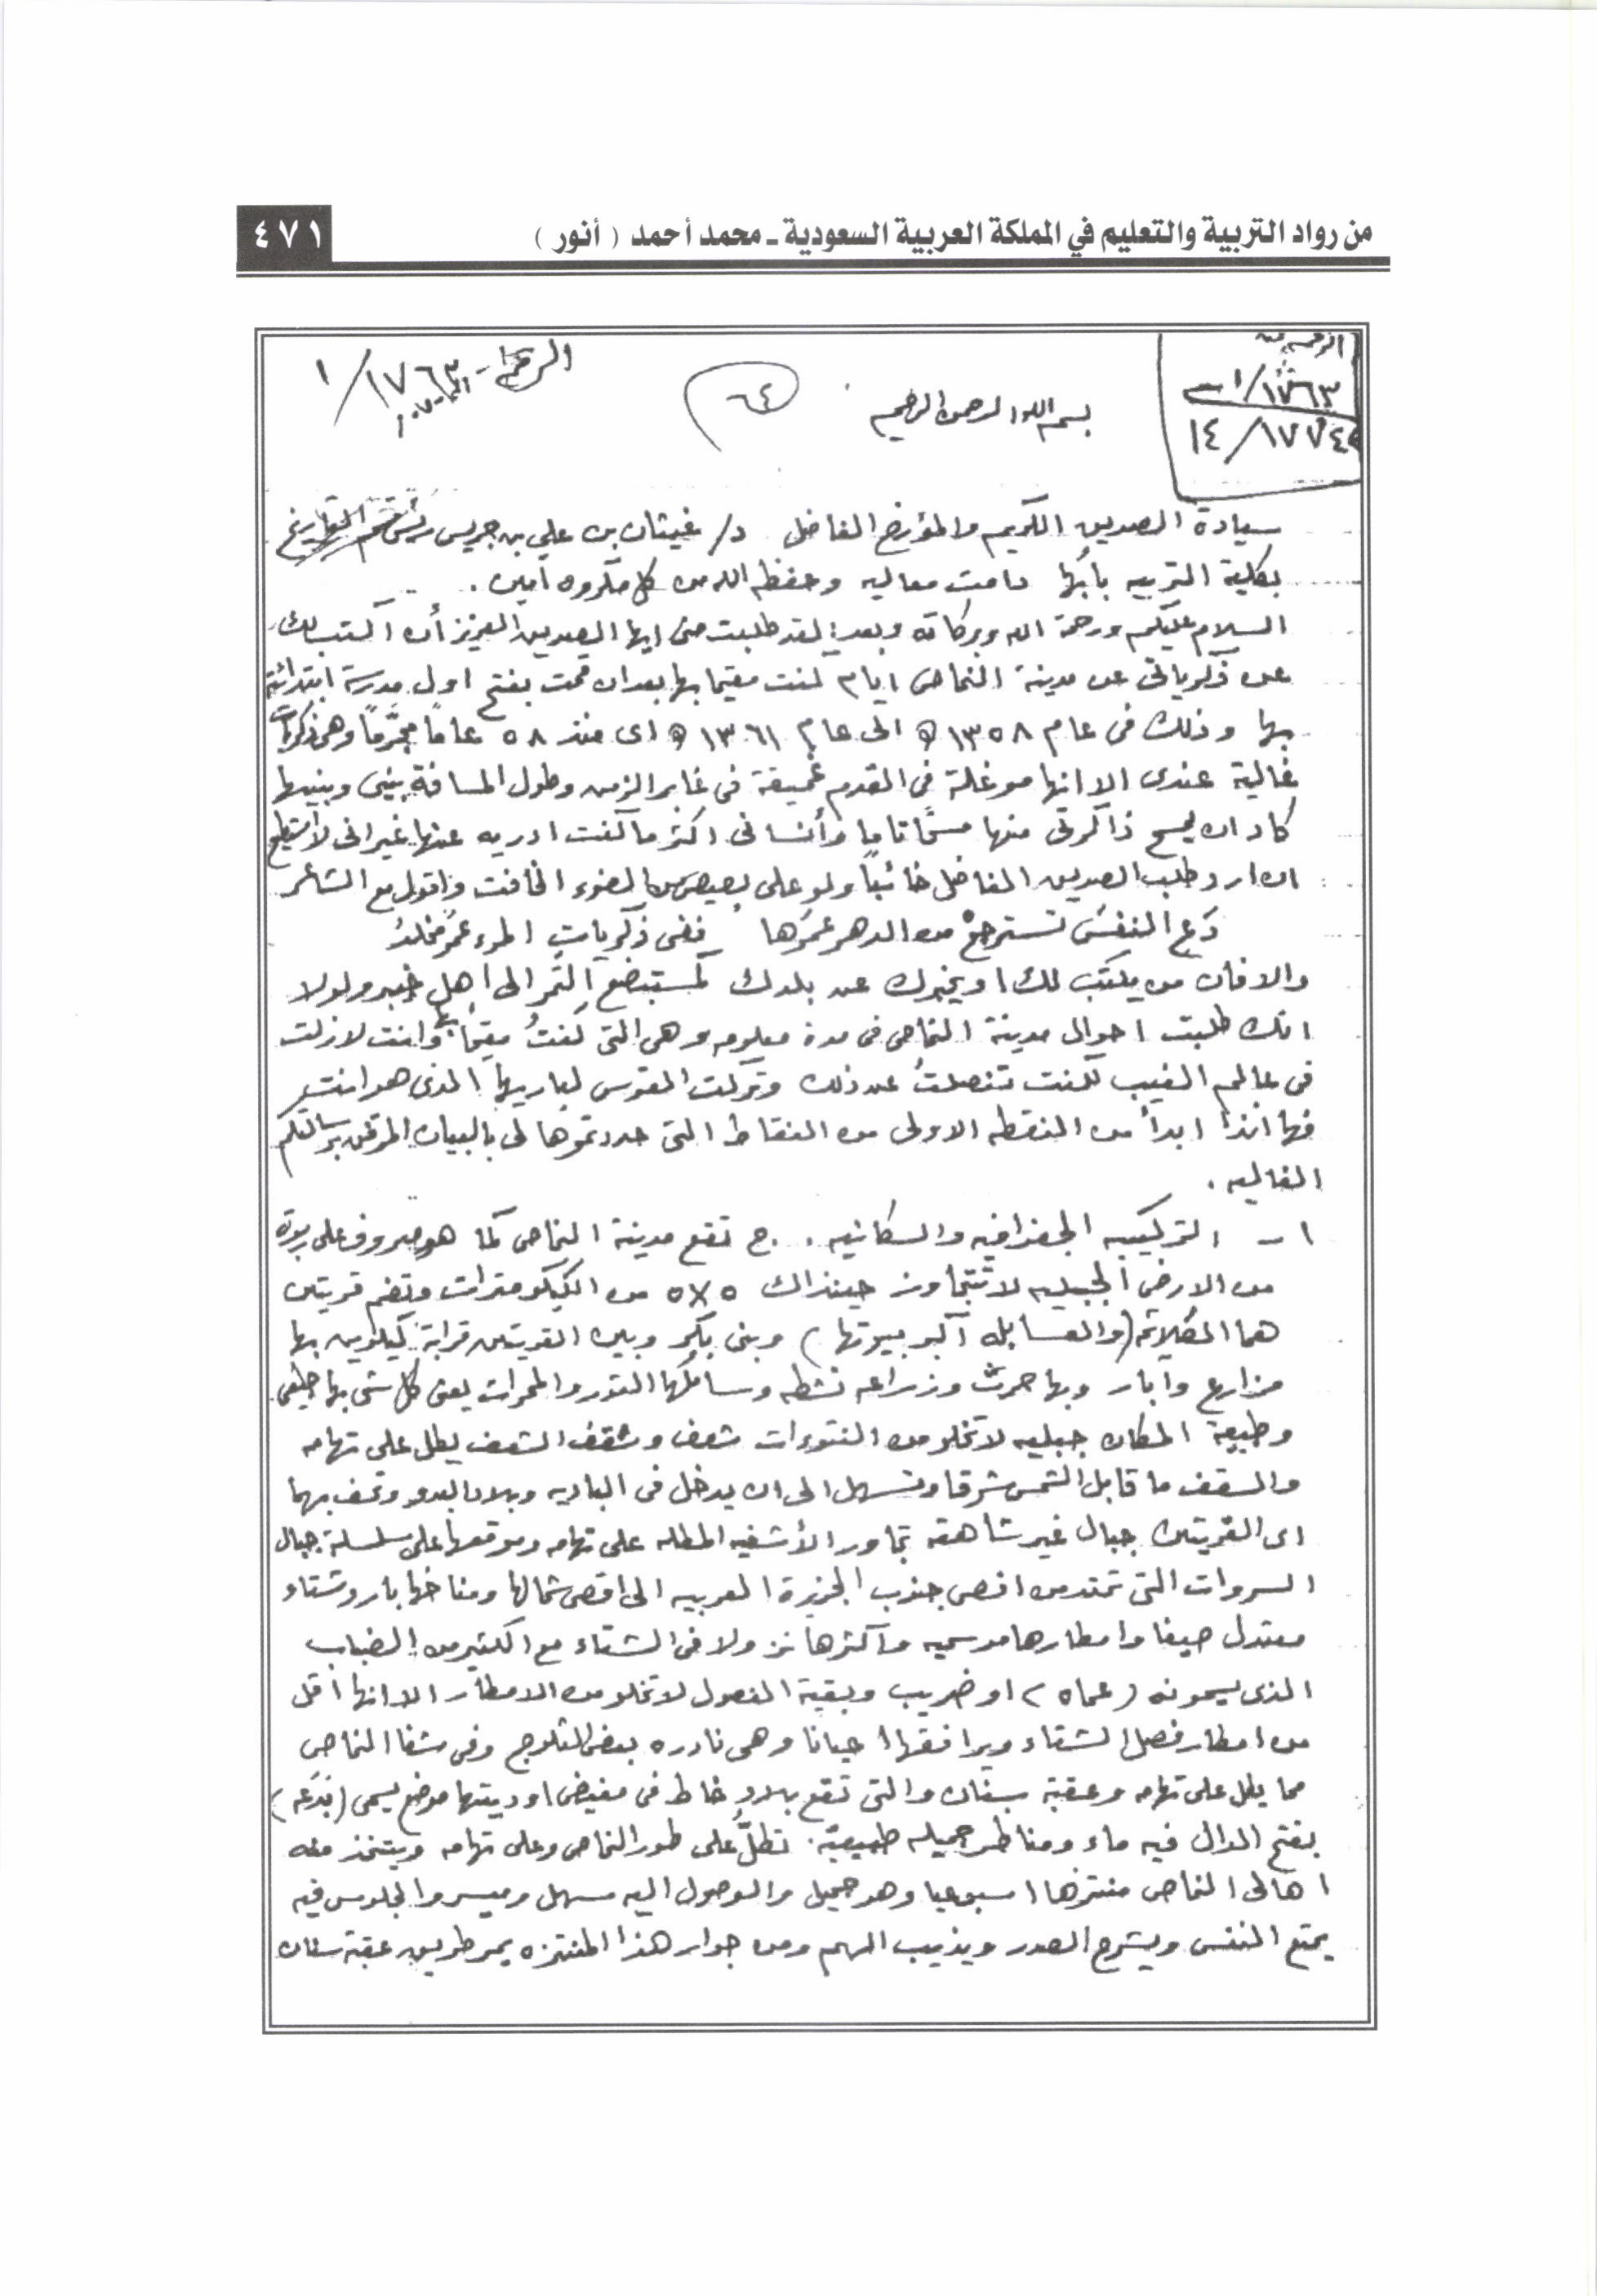 من رواد التربية والتعليم في المملكة العربية السعودية ـ محمد أحمد ( أنور )
٤٧١
١/١٧٦٣
١٤/١٧٧٤
الرقم ١/١٧٦٣
٦٤
بسم الله الرحمن الرحيم
سيادة الصديق الكريم والمؤرخ الفاضل د/ غيثان بن علي بن جريس رئيس قسم التاريخ
بكلية التربيه بأبها دامت معاليه وحفظه الله من كل مكروه آمين .
السلام عليكم ورحمة الله وبركاته وبعد: لقد طلبت منى ايها الصديق العزيز أن اكتب لك
عن ذكرياتى عن مدينة النماص ايام كنت مقيما بها بعد ان قمت بفتح اول مدرسة ابتدائية
بها وذلك فى عام ١٣٥٨ هـ الى عام ١٣٦١ هـ اى منذ ٥٨ عاماً مجرَّماً وهى ذكريات
غالية عندى الا انها موغلة فى القدم عميقة فى غابر الزمن وطول المسافة بينى وبينها
كاد ان يمسح ذاكرتى منها مسحًا تاما وأنسانى اكثر ما كنت ادريه عنها غير انى لا استطيع
ان ارد طلب الصديق الفاضل خائباً ولو على بصيص من الضوء الخافت واقول مع الشاعر
دَع النفسَ تسترجعْ من الدهر عمرَها ففى ذكرياتِ المرء عُمرٌ مخلدُ
والا فان من يكتب لك او يخبرك عن بلدك كمستبضع التمر الى اهل خيبر ولولا
انك طلبت احوال مدينة النماص فى مدة معلومه وهى التى كنتُ مقيماً بها وانت لازلت
فى عالم الغيب لكنت تنصلتُ عن ذلك وتركت القوس لباريها الذى هو انت
فها انذا ابدأ من النقطه الاولى من النقاط التى حددتموها لى بالبيان المرفق برسالتكم
الغاليه .
١ - التركيبه الجغرافيه والسكانيه . ج تقع مدينة النماص كما هو معروف على ربوة
من الارض الجبليه لا تتجاوز حينذاك ٥×٥ من الكيلومترات وتضم قريتين
هما الكلاثمه (والعسابله اكبر بيوتها) وبنى بكر وبين القريتين قرابة كيلوين بها
مزارع وآبار وبها حرث وزراعه نشطه وسائلها الثور والمحراث يعنى كل شى بها طبيعى
وطبيعة المكان جبليه لا تخلو من النتوءات شعف وشقف الشعف يطل على تهامه
والسقف ما قابل الشمس شرقا وتسهل الى ان يدخل فى الباديه وبلاد البدو وتحف بهما
اى القريتين جبال غير شاهقة تجاور الأشفيه المطله على تهامه وموقعها على سلسلة جبال
السروات التى تمتد من اقصى جنوب الجزيرة العربيه الى اقصى شمالها ومناخها بارد شتاء
معتدل صيفا وامطارها موسميه واكثرها نزولا فى الشتاء مع الكثير من الضباب
الذى يسمونه (عماه) او ضريب وبقية الفصول لا تخلو من الامطار الا انها أقل
من امطار فصل الشتاء ويرافقها احيانا وهى نادره بعض الثلوج وفى شفا النماص
مما يطل على تهامه وعقبة سنان والتى تقع بلاد خاط فى مفيض اوديتها موضع يسمى
بفتح الدال فيه ماء ومناظر جميله طبيعية . تطلُّ على طور النماص وعلى تهامه ويتخذ منه
اهالى النماص منتزها اسبوعيا وهو جميل والوصول اليه سهل وميسر والجلوس فيه
يمتع النفس ويشرح الصدر ويذيب الهم ومن جوار هذا المنتزه يمر طريق عقبة سنان